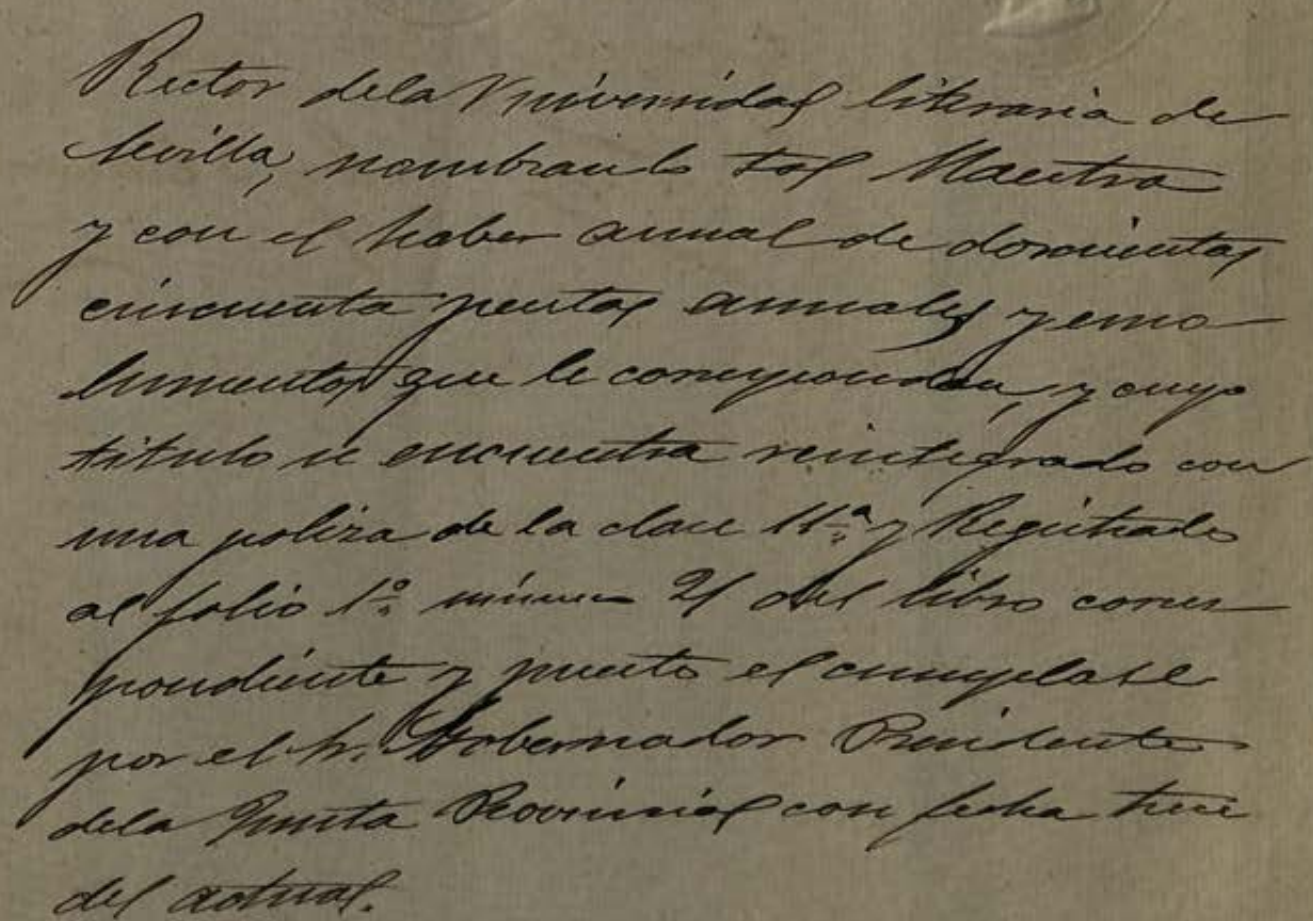 Rector dela Universidad literaria de
Sevilla, nombrando tal Maestra
y con el haber anual de doscientas
cincuenta pesetas anuales y emo
lumentos que le correspondan, y cuyo
titulo se encuentra reintegrado con
una poliza de la clase 11.ª y Registrado
al folio 1.º número 21 del libro corres
pondiente y puesto el cumplase
por el Sr. Gobernador Presidente
dela Junta Provincial con fecha trece
del actual.